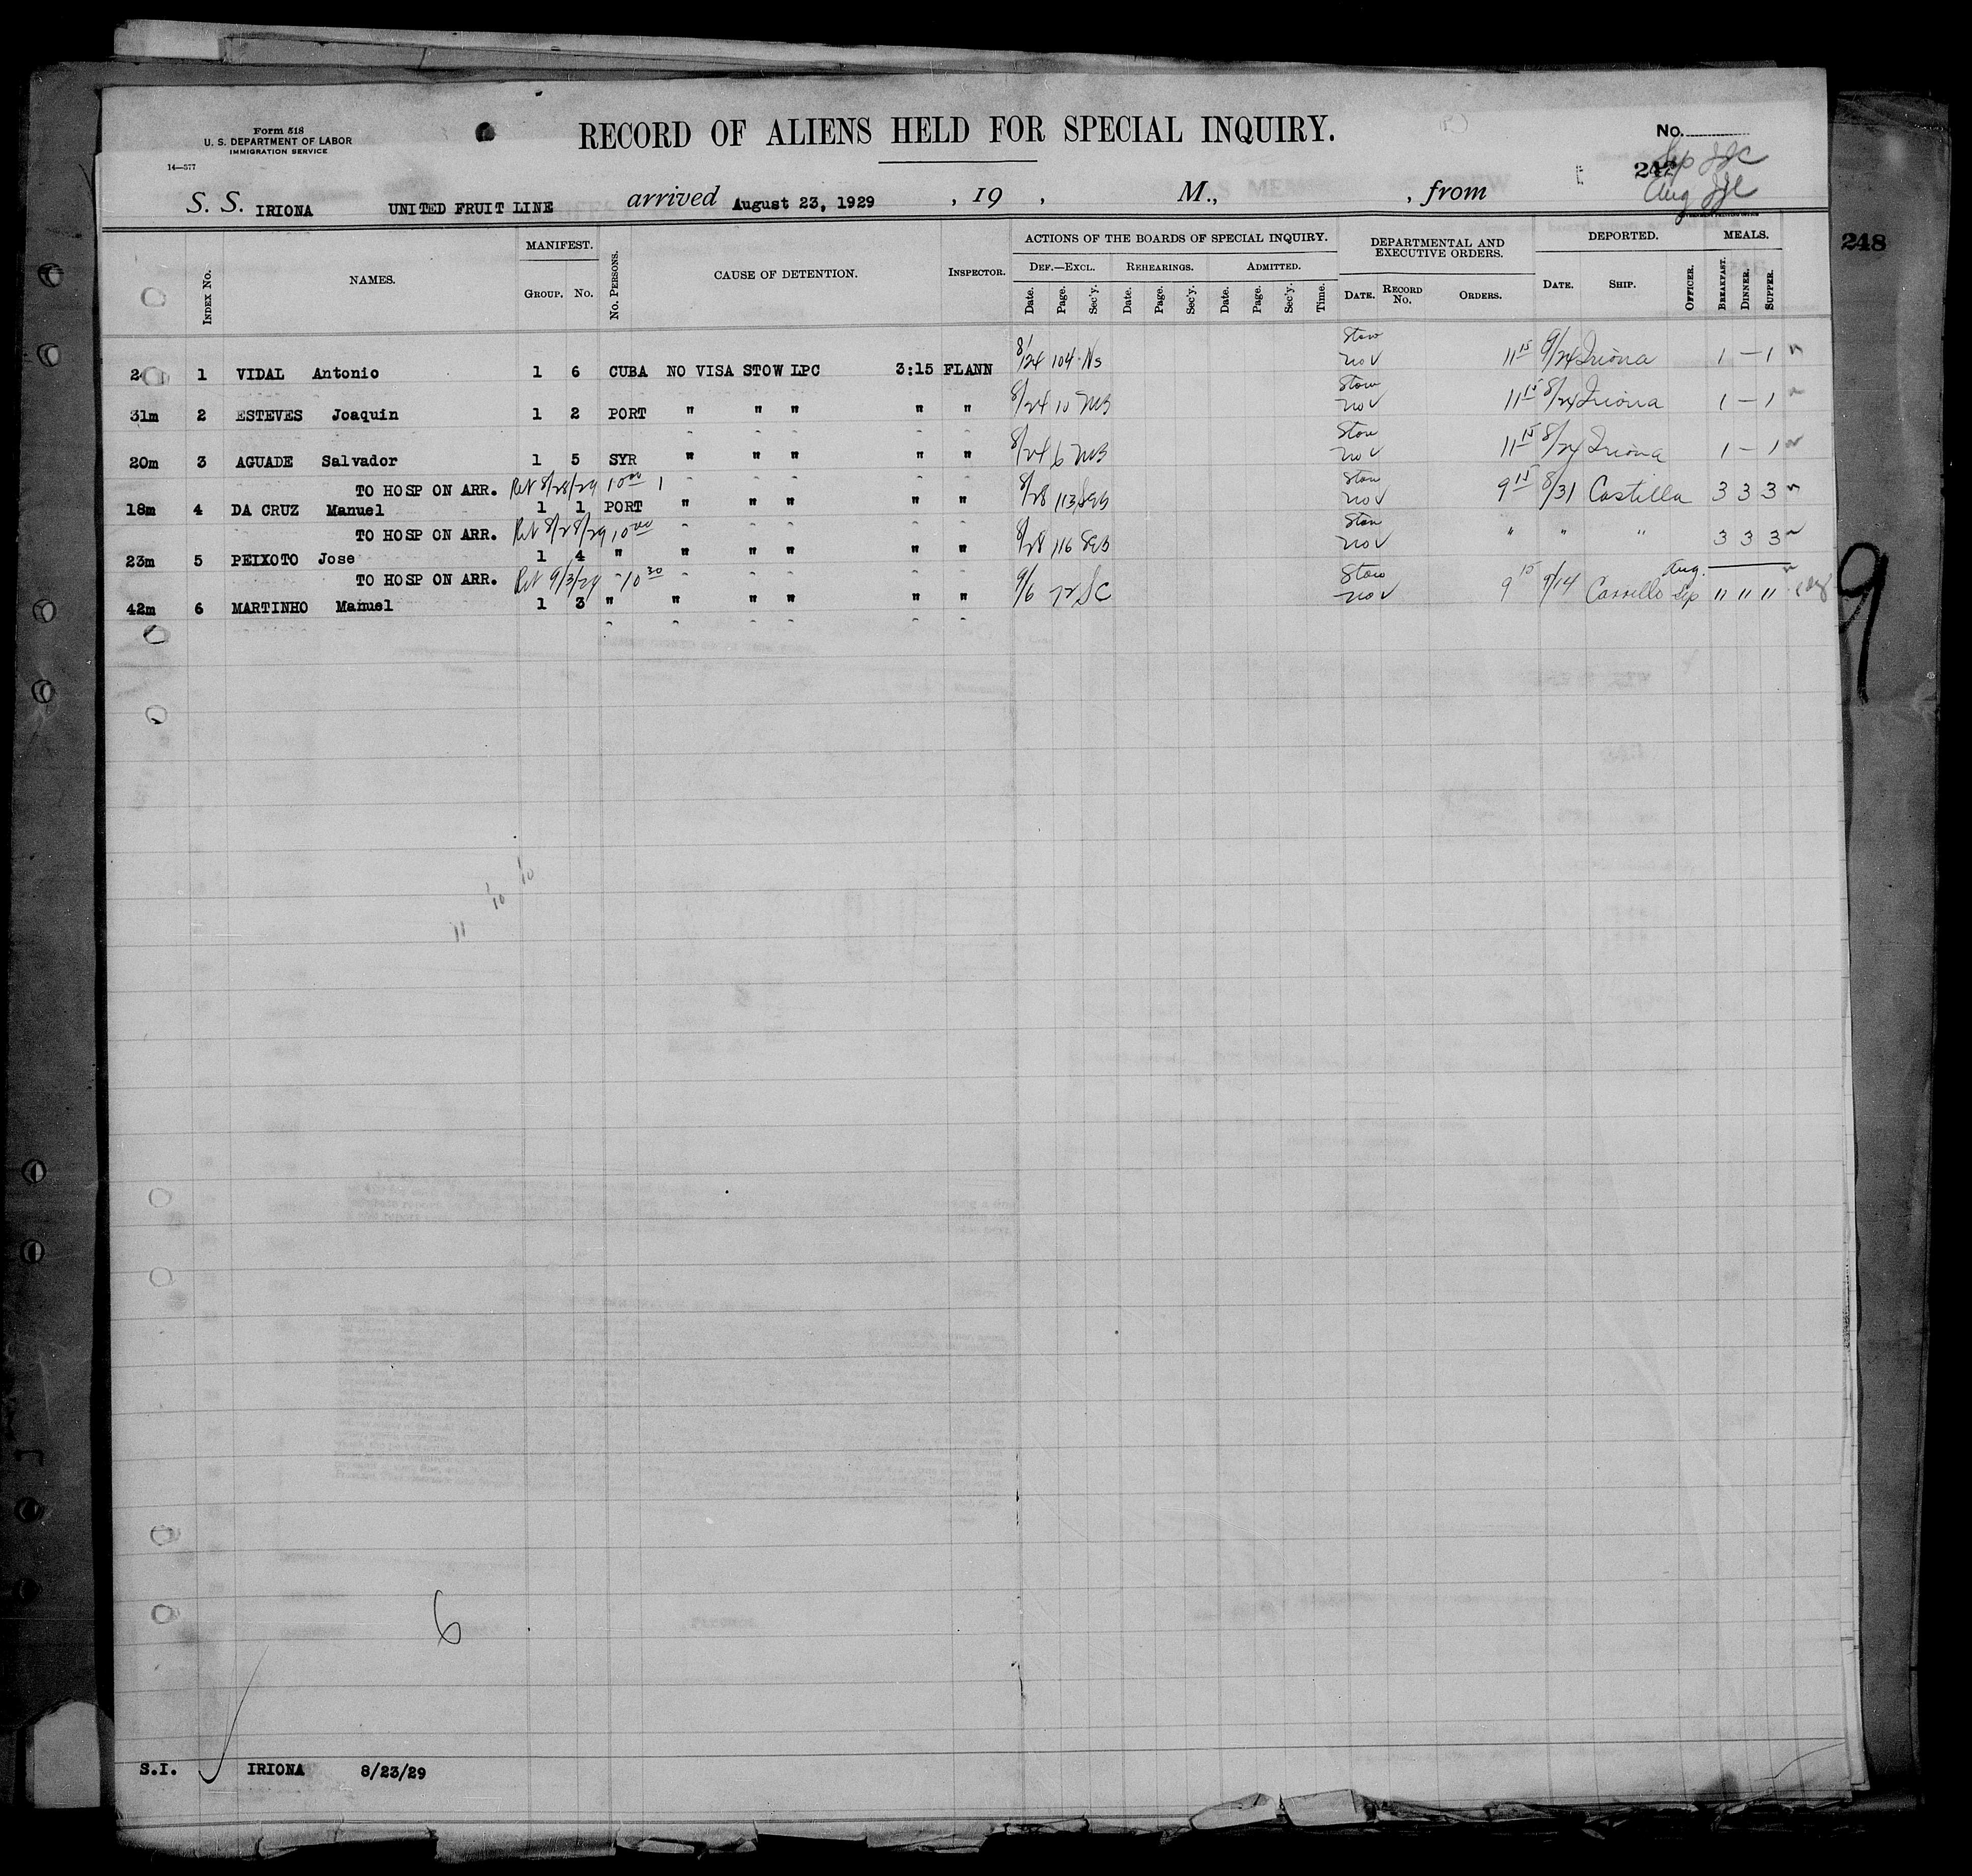 Form 518
U. S. DEPARTMENT OF LABOR
IMMIGRATION SERVICE
14—377
RECORD OF ALIENS HELD FOR SPECIAL INQUIRY.
No.
242
Sep
Aug
S. S. IRIONA UNITED FRUIT LINE arrived August 23, 1929 , 19 , M., , from
248
INDEX NO. NAMES. MANIFEST. GROUP. NO. NO. PERSONS. CAUSE OF DETENTION. INSPECTOR. ACTIONS OF THE BOARDS OF SPECIAL INQUIRY. DEPARTMENTAL AND EXECUTIVE ORDERS. DEPORTED. MEALS.
DEF.—EXCL. REHEARINGS. ADMITTED.
Date. Page. Sec'y. Date. Page. Sec'y. Date. Page. Sec'y. Time. DATE. RECORD No. ORDERS. DATE. SHIP. OFFICER. BREAKFAST. DINNER. SUPPER.
Stow
1 VIDAL Antonio 1 6 CUBA NO VISA STOW LPC 3:15 FLANN 8/24 104 Ns nov 11 15 9/24 Iriona 1 — 1
Stow
31m 2 ESTEVES Joaquin 1 2 PORT " " " " " 8/24 10 nov 11 15 8/24 Iriona 1 — 1
Stow
20m 3 AGUADE Salvador 1 5 SYR " " " " " 8/24 6 nov 11 15 8/24 Iriona 1 — 1
TO HOSP ON ARR. Ret 8/28/29 10 00 1 Stow
18m 4 DA CRUZ Manuel 1 1 PORT " " " " " 8/28 113 nov 9 15 8/31 Castilla 3 3 3
TO HOSP ON ARR. Ret 8/28/29 10 00 Stow
23m 5 PEIXOTO Jose 1 4 " " " " " " 8/28 116 nov " " " 3 3 3
TO HOSP ON ARR. Ret 9/3/29 10 30 Stow Aug.
42m 6 MARTINHO Manuel 1 3 " " " " " " 9/6 72 SC nov 9 15 9/14 Sep " " "
9
10
10
11
6
S.I. IRIONA 8/23/29